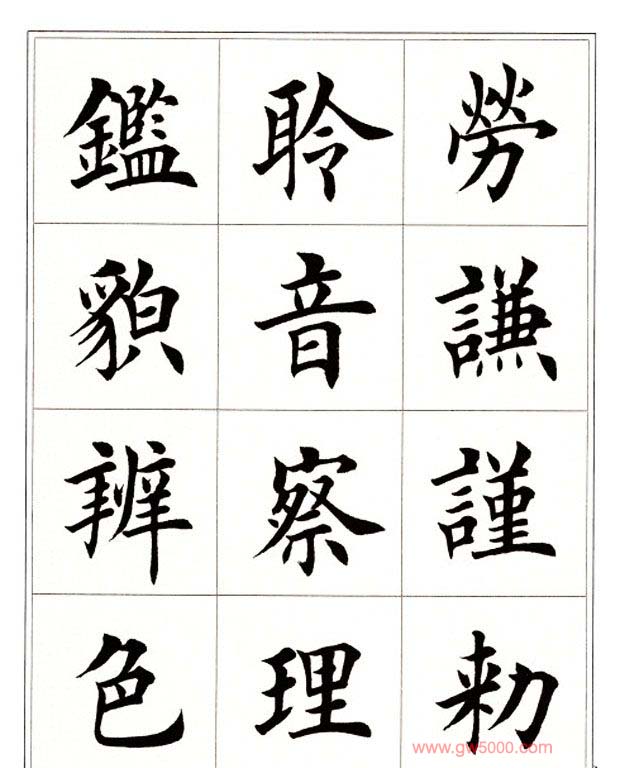 勞謙謹勑
聆音察理
鑑貌辨色
www.gw5000.com